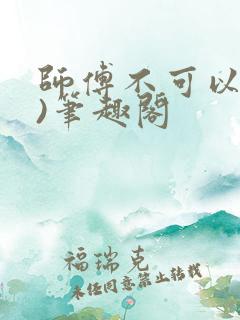 師傅不可以
)筆趣閣
福瑞克
未经同意禁止转载